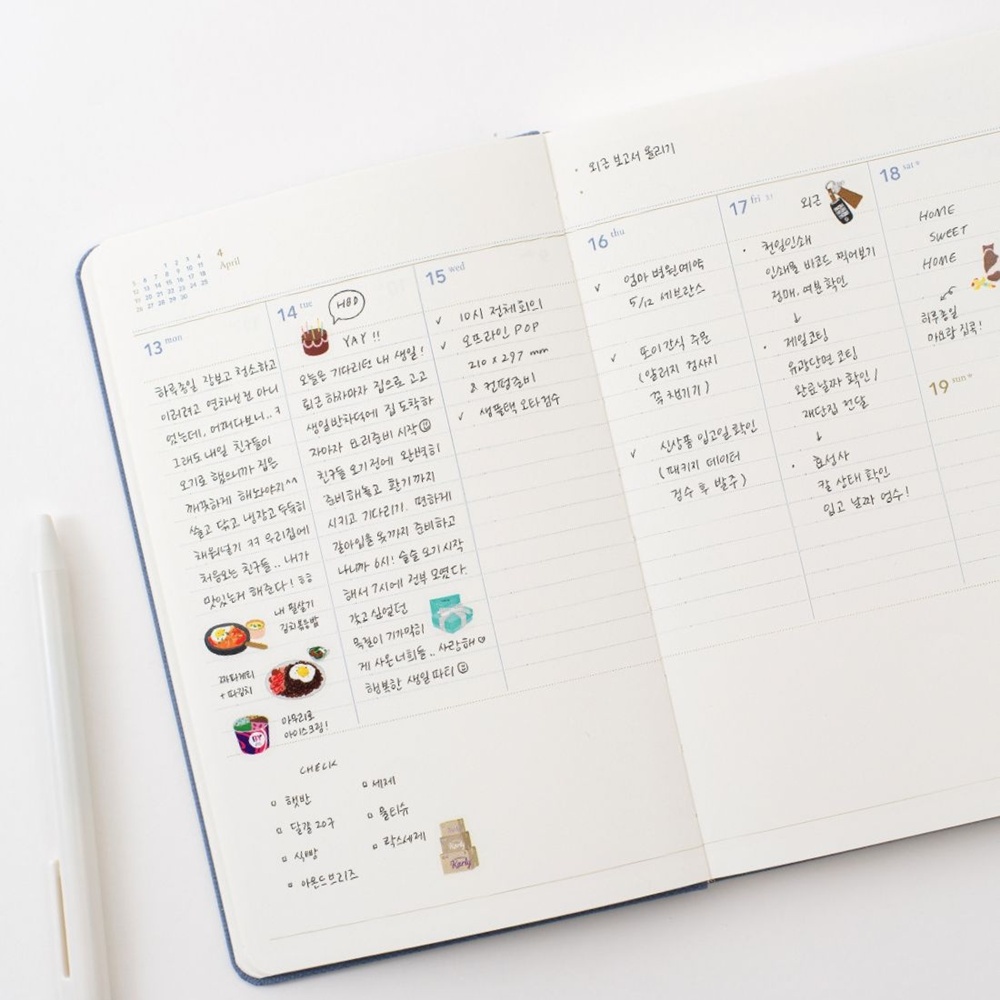 4
April
13 mon
하루종일 장보고 청소하고
이러려고 연차낸건 아니
었는데, 어쩌다보니.. ㅋ
그래도 내일 친구들이
오기로 했으니까 집은
깨끗하게 해놔야지^^
쓸고 닦고 냉장고 두둑히
채워넣기 ㅋㅋ 우리집에
처음오는 친구들.. 내가
맛있는거 해준다! ㅎㅎ
내 필살기
김치볶음밥
짜파게티
+ 파김치
마무리로
아이스크림!
14 tue
HBD
YAY !!
오늘은 기다리던 내 생일!
퇴근 하자마자 집으로 고고
생일반차덕에 집 도착하
자마자 요리준비 시작
친구들 오기 전에 완벽히
준비해놓고 환기까지
시키고 기다리기. 편하게
갈아입을 옷까지 준비하고
나니까 6시! 슬슬 오기시작
해서 7시에 전부 모였다.
갖고 싶었던
목걸이 기가막히
게 사온 너희들.. 사랑해
행복한 생일 파티
15 wed
✓ 10시 전체회의
✓ 오프라인 POP
210 x 297 mm
& 컨펌준비
✓ 샘플택 오타검수
CHECK
햇반
달걀 20구
식빵
아몬드브리즈
세제
물티슈
락스세제
Kurly
Kurly
• 외근 보고서 올리기
•
16 thu
✓ 엄마 병원예약
5/12 세브란스
✓ 또이간식 주문
(알러지 검사지
꼭 챙기기)
✓ 신상품 입고일 확인
(패키지 데이터
검수 후 발주)
17 fri
외근
• 천일인쇄
인쇄물 바코드 찍어보기
정매, 여분 확인
↓
• 제일코팅
유광단면 코팅
완료날짜 확인 /
재단집 전달
↓
• 효성사
칼 상태 확인
입고 날짜 엄수!
18 sat
HOME
SWEET
HOME
하루종일
마요랑 집콕!
19 sun